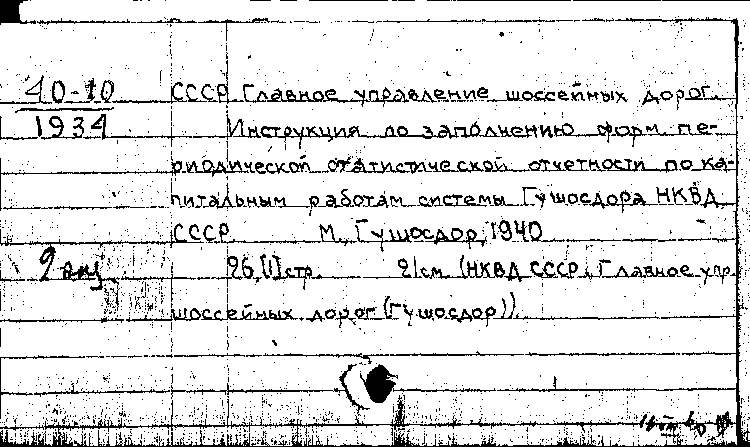 40-10
1934
СССР. Главное управление шоссейных дорог.
Инструкция по заполнению форм пе-
риодической статистической отчетности по ка-
питальным работам системы Гушосдора НКВД
СССР М., Гушосдор, 1940
2 экз.
26,[1]стр. 21см. (НКВД СССР. Главное упр.
шоссейных дорог (Гушосдор)).